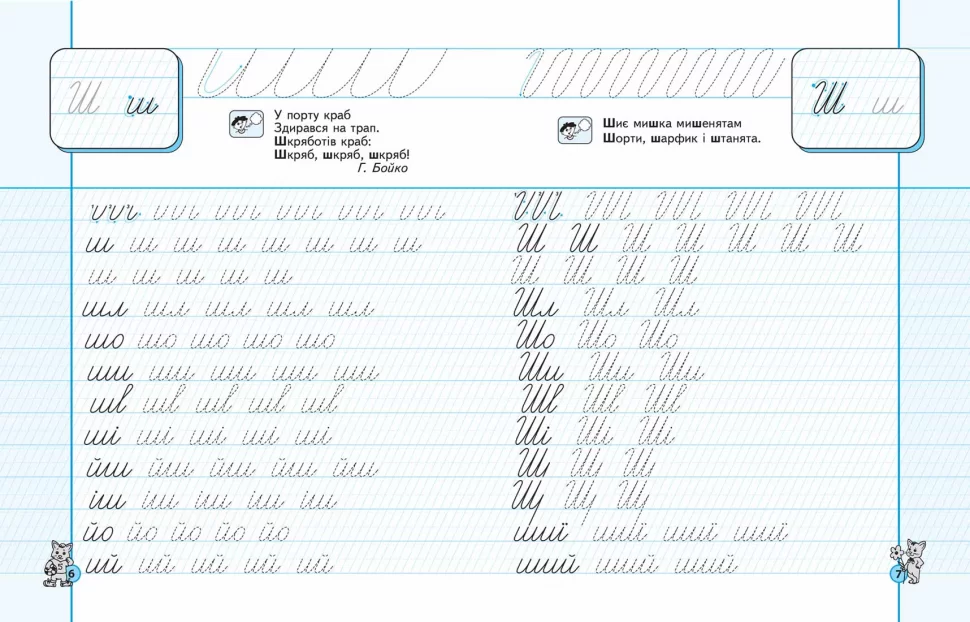 Ш ш
У порту краб
Здирався на трап.
Шкряботів краб:
Шкряб, шкряб, шкряб!
Г. Бойко
ш ш ш ш ш ш ш ш
ш ш ш ш ш
шл шл шл шл шл
шо шо шо шо шо
ши ши ши ши ши
шв шв шв шв шв
ші ші ші ші ші
йш йш йш йш йш
іш іш іш іш іш
йо йо йо йо йо
ий ий ий ий ий
6
Ш ш
Шиє мишка мишенятам
Шорти, шарфик і штанята.
Ш Ш Ш Ш Ш Ш Ш
Ш Ш Ш Ш
Шл Шл Шл
Шо Шо Шо
Ши Ши Ши
Шв Шв Шв
Ші Ші Ші
иші иші иші иші
иший иший иший
7